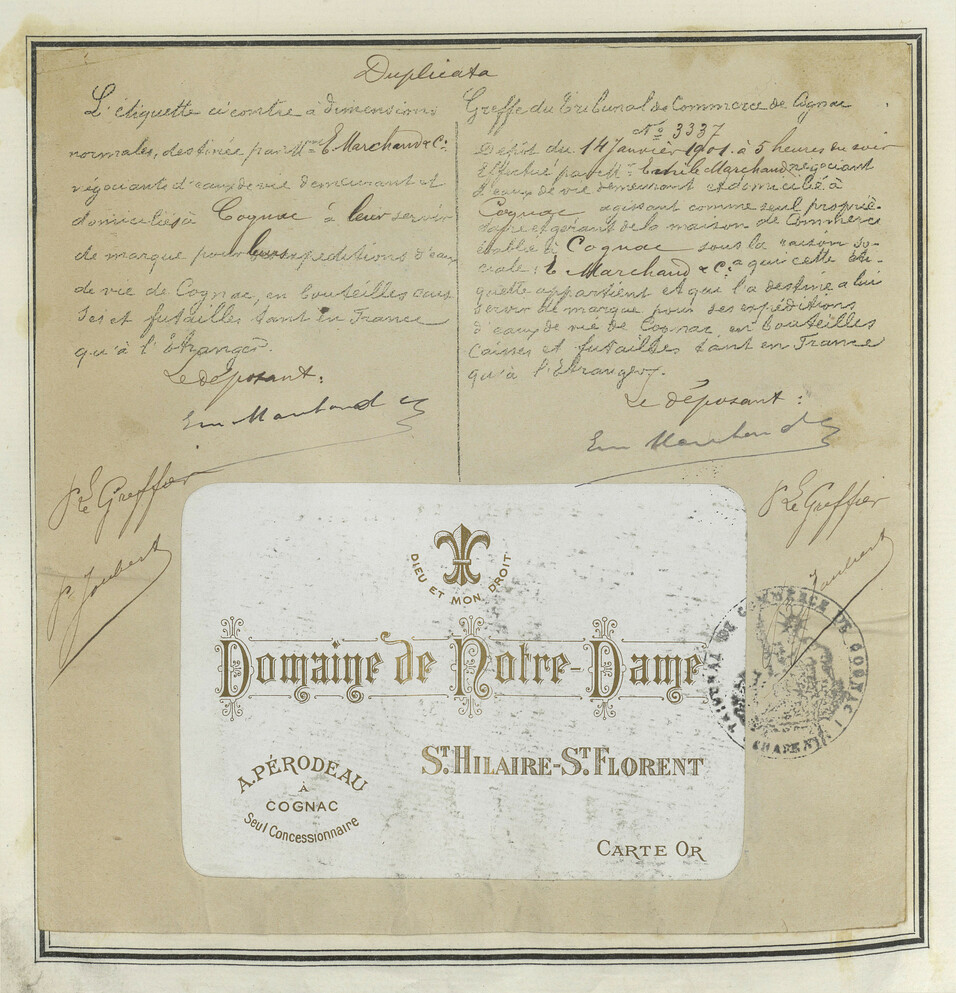 Duplicata
L'étiquette ci contre à dimensions
normales, destinée par Mrs E. Marchand & Cie
négociants d'eaux de vie demeurant et
domiciliés à Cognac à leur servir
de marque pour leurs expéditions d'eaux
de vie de Cognac, en bouteilles cais
ses et futailles tant en France
qu'à l'étranger.
Le déposant:
Em Marchand
Pr Le Greffier
P. Joubert
Greffe du Tribunal de Commerce de Cognac
No 3337
Dépôt du 14 Janvier 1901 à 5 heures du soir
Effectué par Mr Emile Marchand négociant
d'eaux de vie demeurant et domicilié à
Cognac agissant comme seul proprié-
taire et gérant de la maison de Commerce
établie à Cognac sous la raison so-
ciale: E. Marchand & Cie à qui cette éti-
quette appartient et qui l'a destine à lui
servir de marque pour ses expéditions
d'eaux de vie de Cognac en bouteilles
Caisses et futailles tant en France
qu'à l'Etranger.
Le déposant:
Em Marchand
Pr Le Greffier
Joubert
DIEU ET MON DROIT
Domaine de Notre-Dame
ST. HILAIRE-ST. FLORENT
A. PÉRODEAU
À
COGNAC
Seul Concessionnaire
CARTE OR
TRIBUNAL DE COMMERCE DE COGNAC